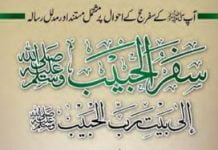 آپ ﷺ کے سفر حج کے احوال پر مشتمل مستند اور مدلل رسالہ
سفر الحبیب ﷺ
إلى بيت رب الحبيب ﷺ